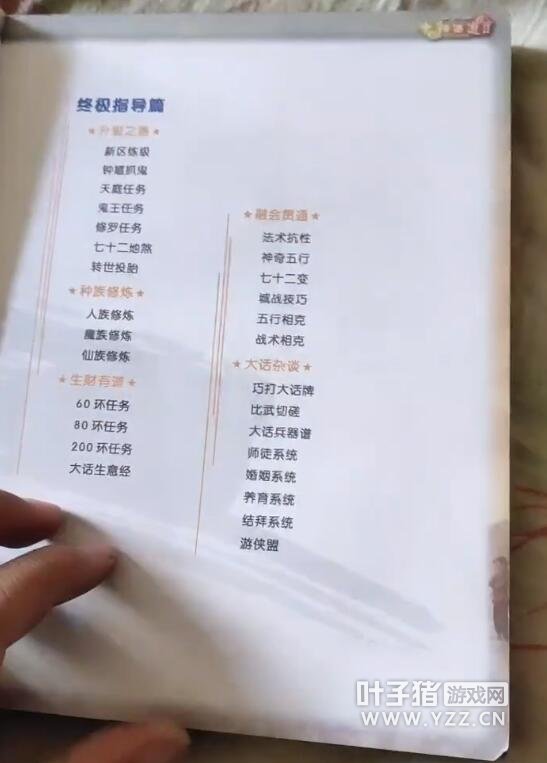 终极指导篇
★升级之路★
新区练级
钟馗抓鬼
天庭任务
鬼王任务
修罗任务
七十二地煞
转世投胎
★种族修炼★
人族修炼
魔族修炼
仙族修炼
★生财有道★
60环任务
80环任务
200环任务
大话生意经
★融会贯通★
法术抗性
神奇五行
七十二变
城战技巧
五行相克
战术相克
★大话杂谈★
巧打大话牌
比武切磋
大话兵器谱
师徒系统
婚姻系统
养育系统
结拜系统
游侠盟
叶子猪游戏网
www.YZZ.CN